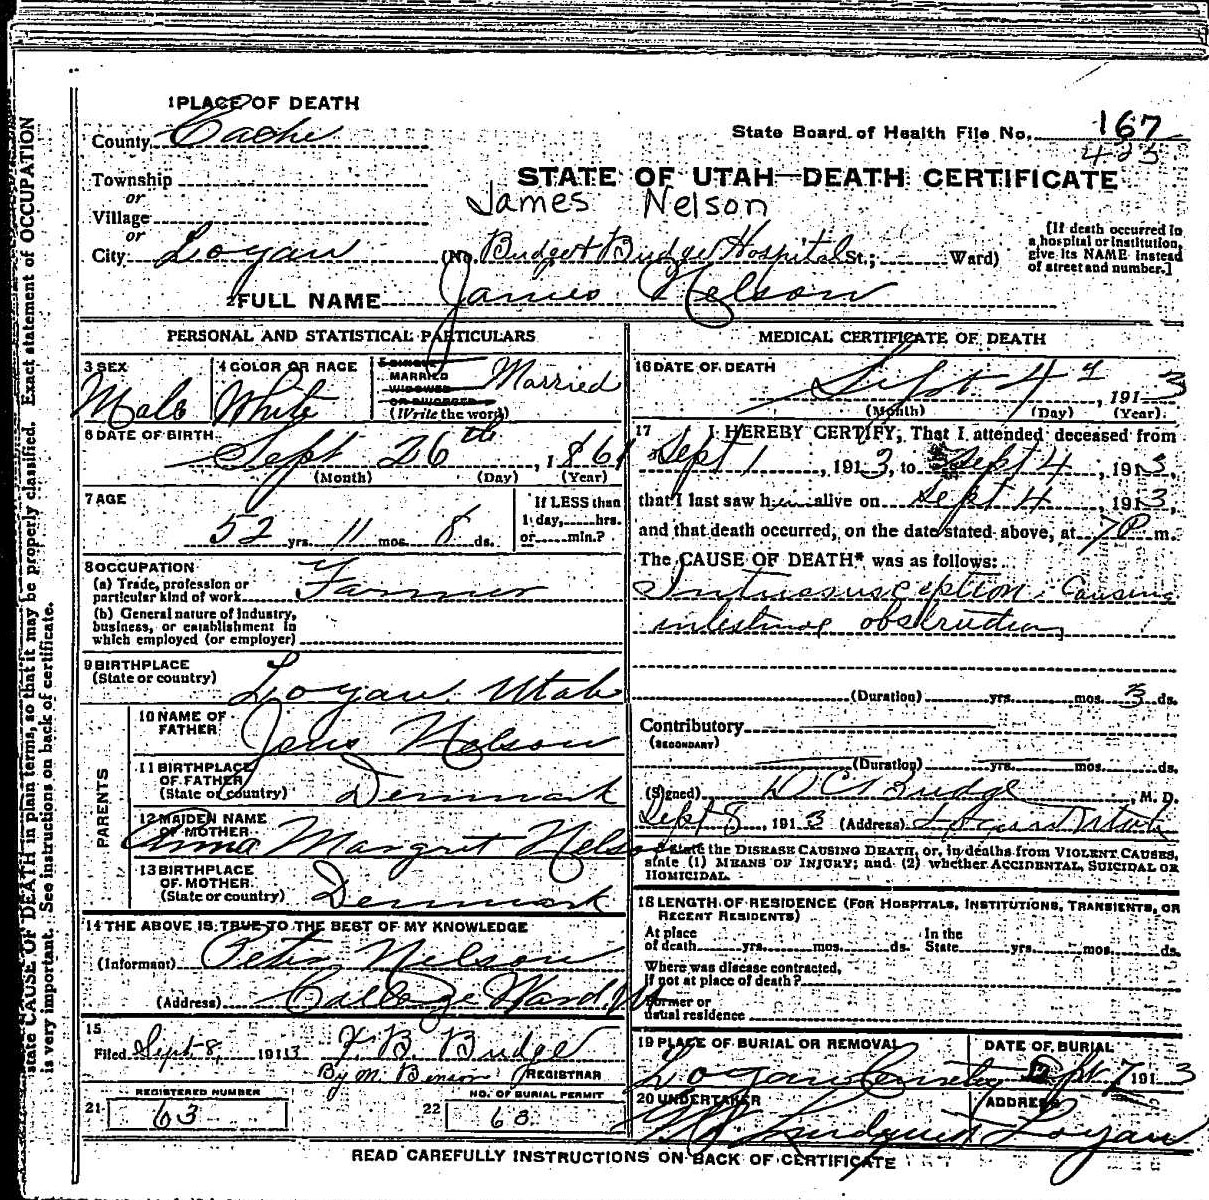 1 PLACE OF DEATH
County Cache
State Board of Health File No. 167
423
Township
or
Village
or
City Logan
STATE OF UTAH—DEATH CERTIFICATE
James Nelson
(No. Budge & Budge Hospital St.; Ward)
[If death occurred in
a hospital or institution,
give its NAME instead
of street and number.]
2 FULL NAME James Nelson
PERSONAL AND STATISTICAL PARTICULARS
3 SEX
Male
4 COLOR OR RACE
White
5 SINGLE
MARRIED
WIDOWED
OR DIVORCED
(Write the word)
Married
6 DATE OF BIRTH
Sept 26th, 1861
(Month) (Day) (Year)
7 AGE
52 yrs. 11 mos. 8 ds.
If LESS than
1 day, hrs.
or min.?
8 OCCUPATION
(a) Trade, profession or
particular kind of work Farmer
(b) General nature of industry,
business, or establishment in
which employed (or employer)
9 BIRTHPLACE
(State or country)
Logan Utah
PARENTS
10 NAME OF
FATHER
Jens Nelson
11 BIRTHPLACE
OF FATHER
(State or country)
Denmark
12 MAIDEN NAME
OF MOTHER
Anna Margret Nelson
13 BIRTHPLACE
OF MOTHER
(State or country)
Denmark
14 THE ABOVE IS TRUE TO THE BEST OF MY KNOWLEDGE
(Informant) Peter Nelson
(Address) College Ward
15
Filed Sept. 8, 1913 F. B. Budge
By M. Benson REGISTRAR
REGISTERED NUMBER
21 63
NO. OF BURIAL PERMIT
22 63
MEDICAL CERTIFICATE OF DEATH
16 DATE OF DEATH
Sept 4, 1913
(Month) (Day) (Year)
17 I HEREBY CERTIFY, That I attended deceased from
Sept 1, 1913, to Sept 4, 1913,
that I last saw him alive on Sept 4, 1913,
and that death occurred, on the date stated above, at 7 P m.
The CAUSE OF DEATH* was as follows:
Intussusception Causing
intestinal obstruction
(Duration) yrs. mos. 3 ds.
Contributory
(SECONDARY)
(Duration) yrs. mos. ds.
(Signed) D C Budge, M. D.
Sept 8, 1913 (Address) Logan Utah
State the DISEASE CAUSING DEATH, or, in deaths from VIOLENT CAUSES,
state (1) MEANS OF INJURY; and (2) whether ACCIDENTAL, SUICIDAL OR
HOMICIDAL.
18 LENGTH OF RESIDENCE (FOR HOSPITALS, INSTITUTIONS, TRANSIENTS, OR
RECENT RESIDENTS)
At place
of death yrs. mos. ds.
In the
State yrs. mos. ds.
Where was disease contracted,
if not at place of death?
Former or
usual residence
19 PLACE OF BURIAL OR REMOVAL
Logan Cemetery
DATE OF BURIAL
Sept 7 1913
20 UNDERTAKER
Lundquist
ADDRESS
Logan
READ CAREFULLY INSTRUCTIONS ON BACK OF CERTIFICATE
state CAUSE OF DEATH in plain terms, so that it may be properly classified. Exact statement of OCCUPATION
is very important. See instructions on back of certificate.